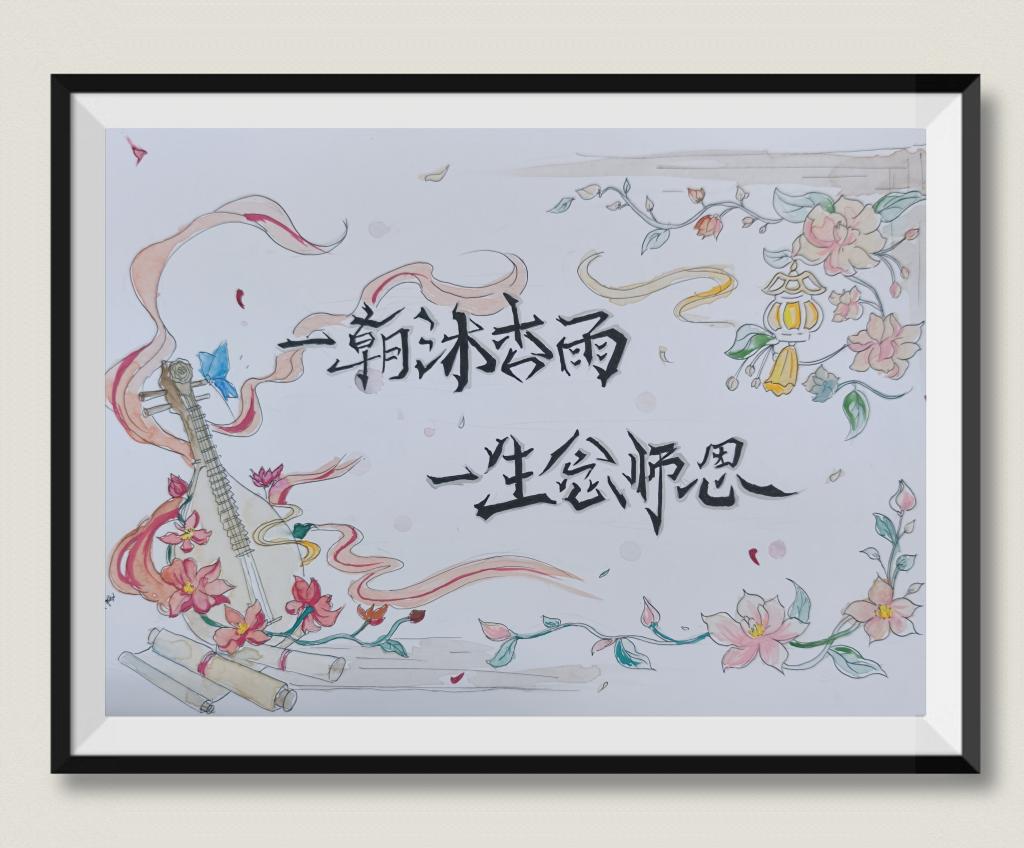 一朝沐杏雨
一生念师恩